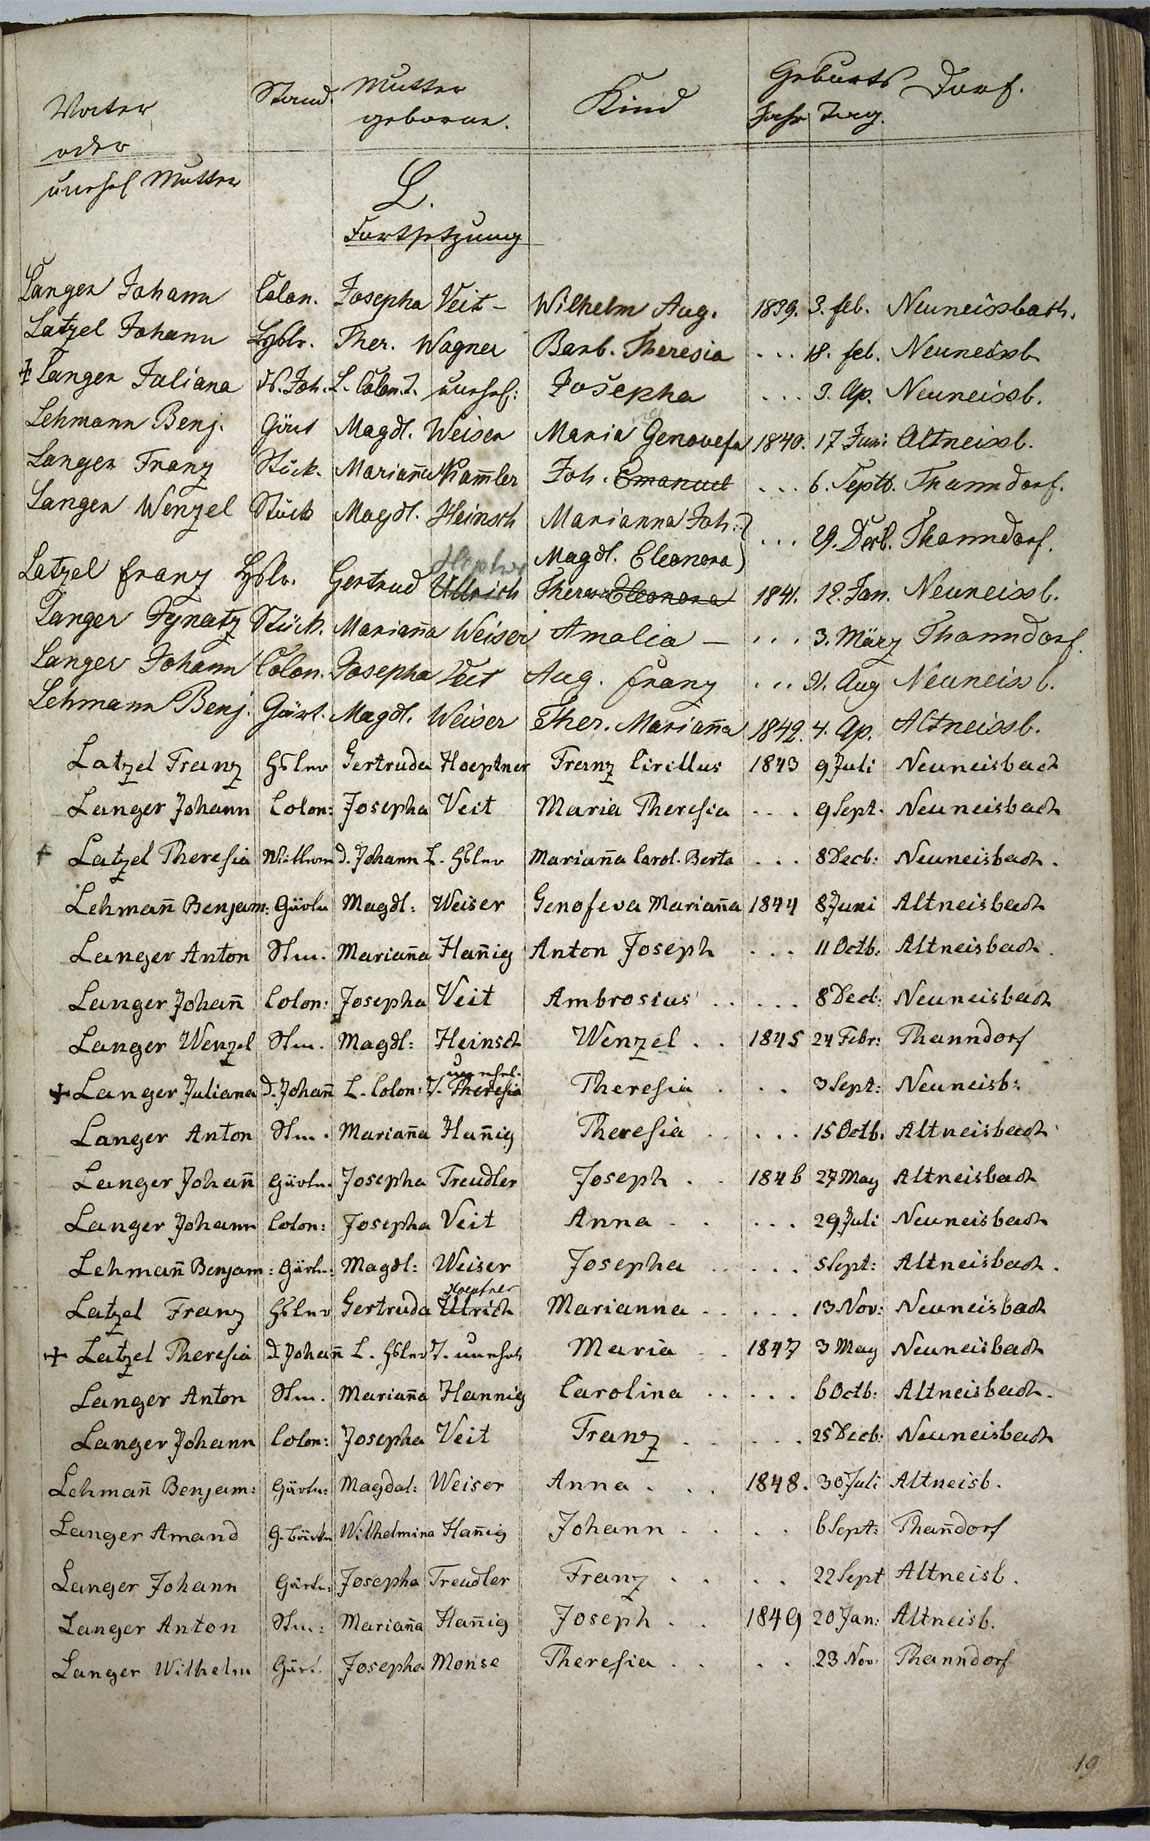 Vater Stand. Mutter Kind Geburts Dorf.
oder geborne. Jahr Tag.
unehel Mutter
L.
Fortsetzung
Langer Johann Colon. Josepha Veit – Wilhelm Aug. 1839. 3. feb. Neuneissbach.
Latzel Johann Hslr. Ther. Wagner Barb. Theresia ... 18. feb. Neuneissb.
+ Langer Juliana d. Joh. L. Colon. T. unehel: Josepha ... 3. Ap. Neuneissb.
Lehmann Benj. Gärt Magdl. Weiser Maria Genovefa 1840. 17 Juni Altneissb.
Langer Franz Stück. Mariana Kamler Joh. Emanuel ... 6. Septb. Thanndorf.
Langer Wenzel Stück Magdl. Heinsch Marianna Joh. } ... 29. Decb. Thanndorf.
Magdl. Eleonora }
Latzel Franz Hslr. Gertrud Ullrich Theres Eleonora 1841. 12. Jan. Neuneissb.
Langer Ignatz Stück. Mariana Weiser Amalia – ... 3. März Thanndorf.
Langer Johann Colon. Josepha Veit Aug. Franz ... 21. Aug Neuneissb.
Lehmann Benj. Gärt. Magdl. Weiser Ther. Mariana 1842. 4. Ap. Altneissb.
Latzel Franz Hsler Gertruda Hoeptner Franz Cirillus 1843 9 Juli Neuneisbach
Langer Johann Colon: Josepha Veit Maria Theresia ... 9 Sept. Neuneisbach
+ Latzel Theresia Wittwe d. Johann L. Hsler Mariana Carol. Berta ... 8 Decb: Neuneisbach.
Lehmañ Benjam: Gärtn Magdl: Weiser Genofeva Mariana 1844 8 Juni Altneisbach
Langer Anton Stm. Mariana Hañig Anton Joseph ... 11 Octb: Altneisbach.
Langer Johañ Colon: Josepha Veit Ambrosius ... 8 Decb: Neuneisbach
Langer Wenzel Stm. Magdl: Heinsch Wenzel .. 1845 24 Febr: Thanndorf
unehel.
+ Langer Juliana D. Johañ L. Colon: T. Theresia Theresia ... 3 Sept: Neuneisb:
Langer Anton Stm. Mariana Hañig Theresia ... 15 Octb. Altneisbach
Langer Johañ Gärtn. Josepha Treudler Joseph .. 1846 27 May Altneisbach
Langer Johann Colon: Josepha Veit Anna ... 29 Juli Neuneisbach
Lehmañ Benjam: Gärtn: Magdl: Weiser Josepha ... 5 Sept: Altneisbach.
Hoeptner
Latzel Franz Hsler Gertruda Ulrich Marianna ... 13 Nov: Neuneisbach
+ Latzel Theresia D. Johañ L. Hsler T. unehel Maria .. 1847 3 May Neuneisbach
Langer Anton Stm. Mariana Hannig Carolina ... 6 Octb: Altneisbach.
Langer Johann Colon: Josepha Veit Franz ... 25 Decb: Neuneisbach
Lehmañ Benjam: Gärtn: Magdal: Weiser Anna ... 1848. 30 Juli Altneisb.
Langer Amand Wilhelmina Hañig Johann ... 6 Sept: Thañdorf
Langer Johann Gärtn: Josepha Treudler Franz ... 22 Sept Altneisb.
Langer Anton Stm: Mariana Hañig Joseph .. 1849 20 Jan: Altneisb.
Langer Wilhelm Gärt. Josepha Monse Theresia ... 23 Nov: Thanndorf
19